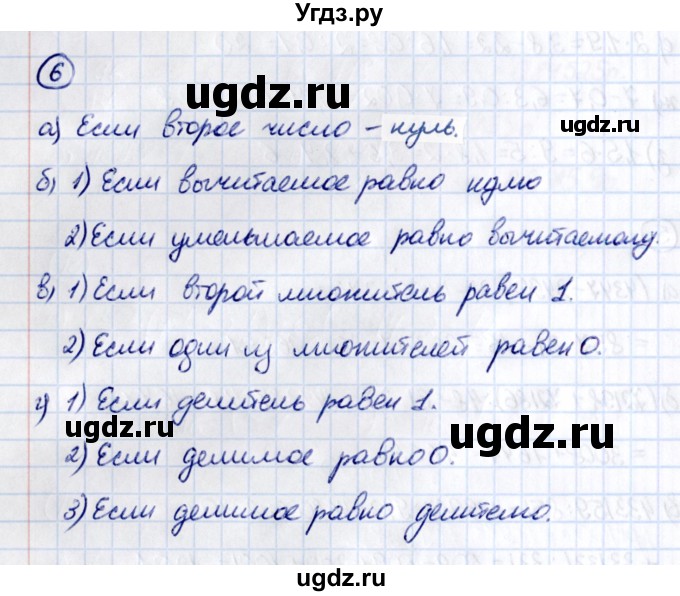 Угдз.ру
ugdz.ru
6
ugdz.ru
а) Если второе число – нуль. ugdz.ru
б) 1) Если вычитаемое равно нулю
2) Если уменьшаемое равно вычитаемому.
в) 1) Если второй множитель равен 1.
2) Если один из множителей равен 0.
г) 1) Если делитель равен 1.
ugdz.ru ugdz.ru
2) Если делимое равно 0.
3) Если делимое равно делителю.
ugdz.ru